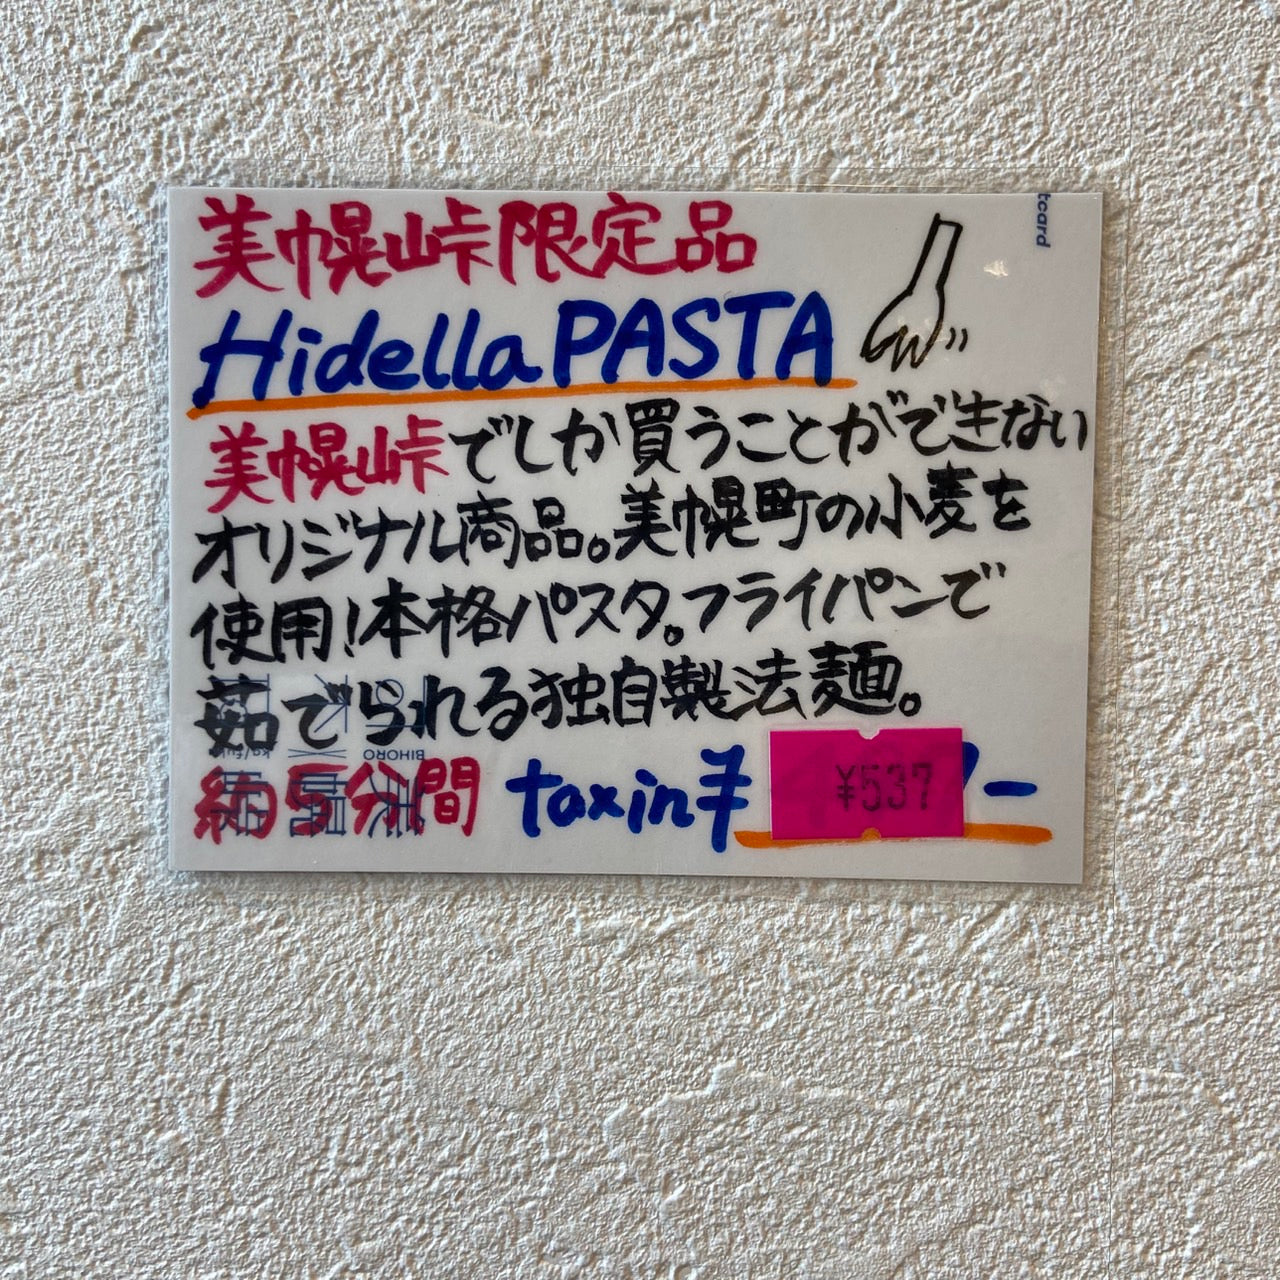 美幌峠限定品
Hidella PASTA
美幌峠でしか買うことができない
オリジナル商品。美幌町の小麦を
使用！本格パスタ。フライパンで
茹でられる独自製法麺。
約5分間 taxin¥ ¥537 -
tcard
BIHORO